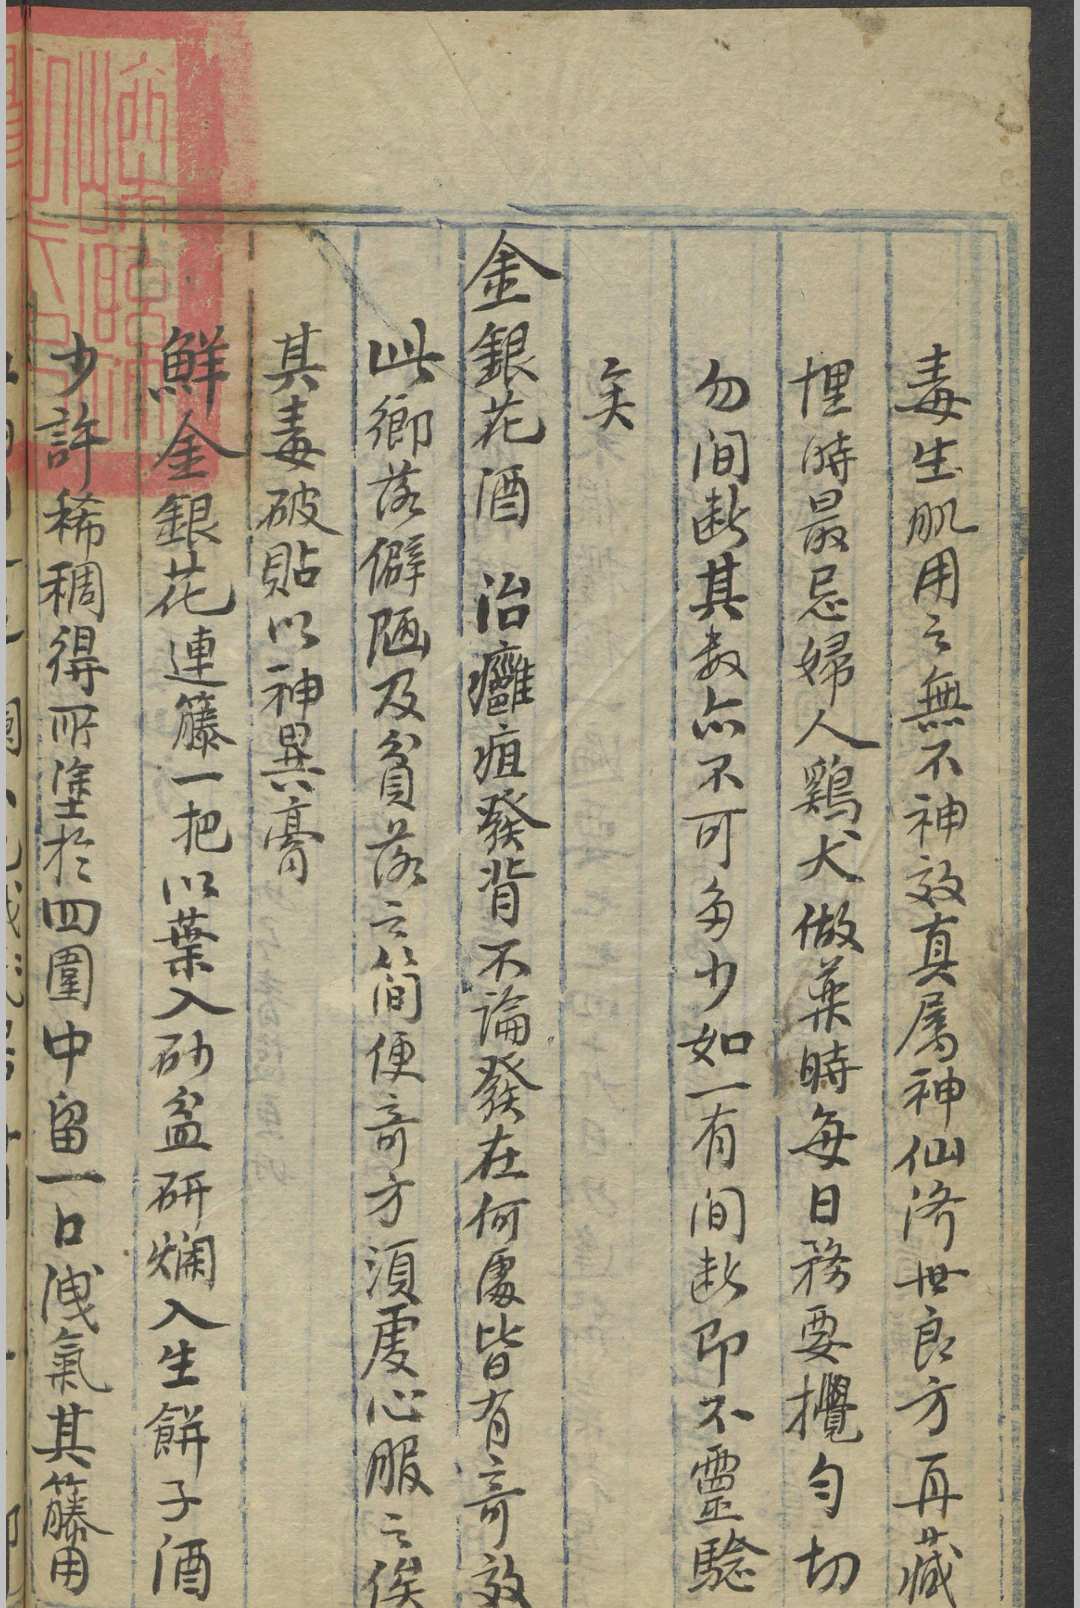 毒生肌用之無不神效真属神仙济世良方再藏
埋時最忌婦人鷄犬做葉時每日務要攪匀切
勿间断其数亦不可多少如一有间断即不靈驗
矣
金銀花酒 治癰疽發背不論發在何處皆有奇效
此鄉落僻陋及貧落之簡便奇方須虔心服之俟
其毒破貼以神異膏
鮮金銀花連籐一把以葉入砂盆研爛入生餅子酒
少許稀稠得所塗於四圍中留一口洩氣其籐用